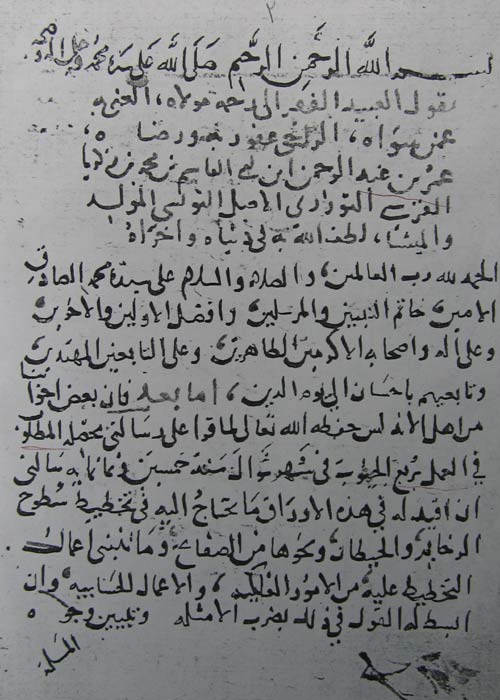 ٢
بسم الله الرحمن الرحيم صلى الله على سيدنا محمد وعلى اله وصحبه
يقول العبيد الفقير الى رحمة مولاه، الغني به
عمن سواه، الراجي عفوه ورضاه
عمر بن عبد الرحمن ابن ابي القاسم بن محمد بن زكريا
القرشي التوزري الاصل التونسي المولد
والمنشا، لطف الله به في دنياه واخراه
الحمد لله رب العالمين، والصلاة والسلام على سيدنا محمد الصادق
الامين خاتم النبيين والمرسلين وافضل الاولين والاخرين
وعلى اله واصحابه الاكرمين الطاهرين، وعلى التابعين المهتدين
وتابعيهم باحسان الى يوم الدين، اما بعد فان بعض اخواننا
من اهل الاندلس حفظه الله تعالى لما قرا على رسالتي محتملة المطلوب
في العمل بربع الجيوب في شهر شوال سنة خمسين وثمانمائة سالني
ان اقيد له في هذه الاوراق ما يحتاج اليه في تخطيط سطوح
الرخايم والحيطان ونحوها من الصفايح وما تنبني اعمال
التخطيط عليه من الامور الفلكية، والاعمال الحسابية وان
ابسط له القول في ذلك بضرب الامثلة وتبيين وجوه
المسئلة